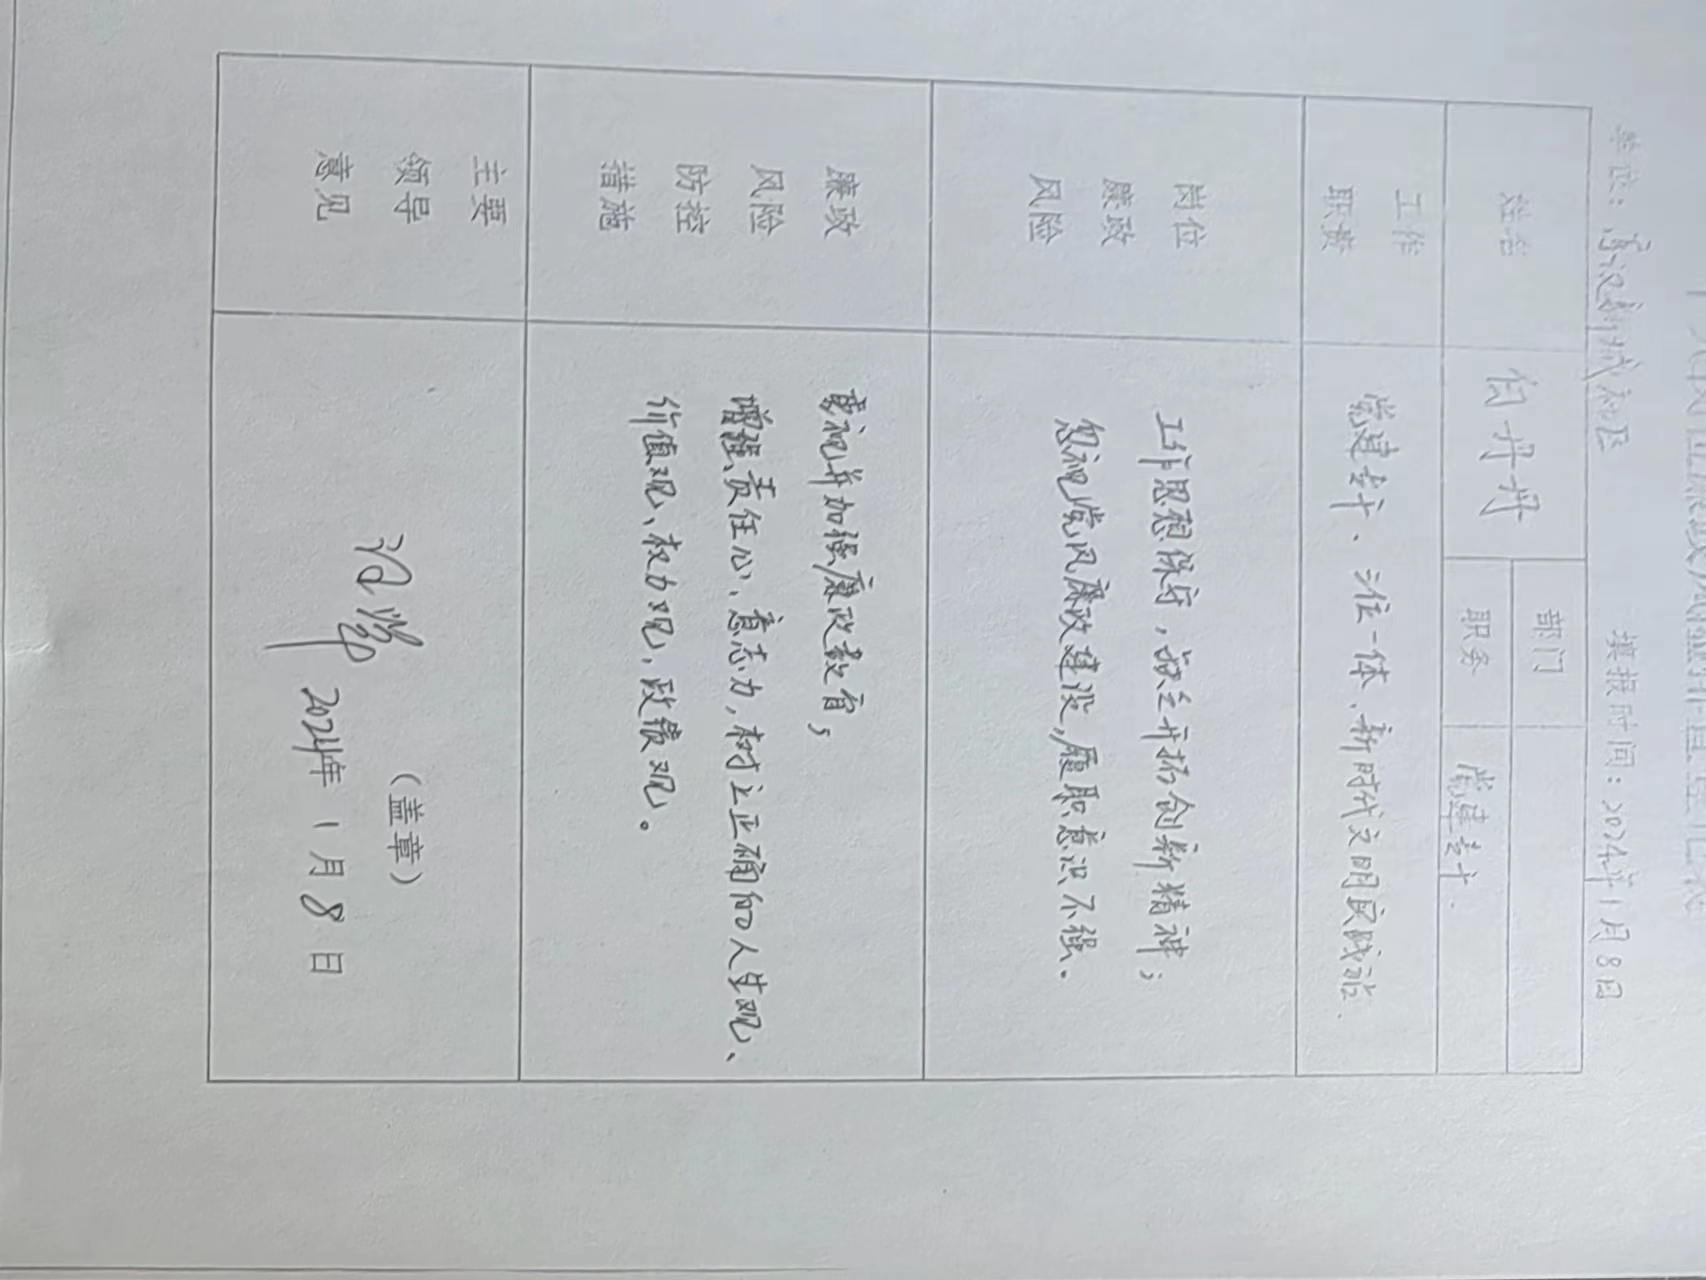 单位：高汉新城社区 填报时间：2024年1月8日
姓名 何丹丹 部门
职务 党建专干
工作职责 党建专干、三位一体、新时代文明实践站
岗位廉政风险 工作思想保守，缺乏开拓创新精神；
忽视党风廉政建设，履职意识不强。
廉政风险防控措施 重视并加强廉政教育，
增强责任心、意志力，树立正确的人生观、
价值观、权力观，政绩观。
主要领导意见
（盖章）
2024年1月8日